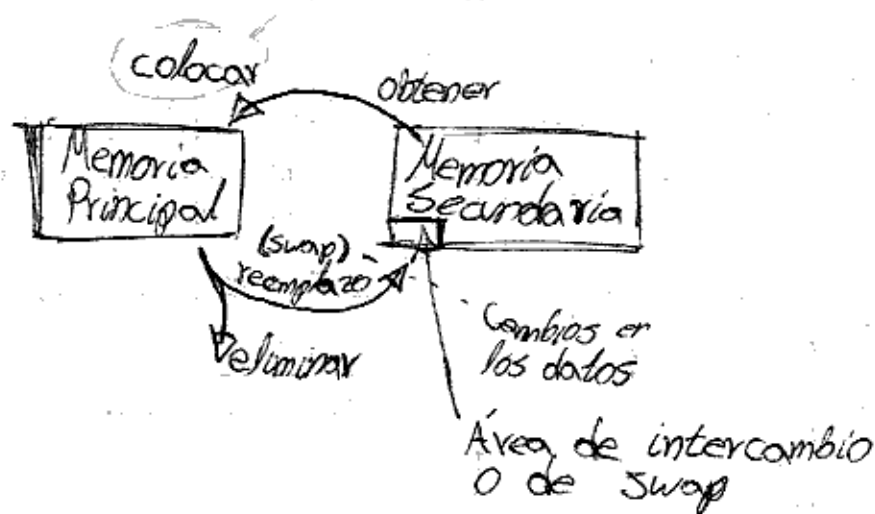 colocar
obtener
Memoria
Principal
Memoria
Secundaria
(swap)
reemplazo
eliminar
Cambios en
los datos
Área de intercambio
o de swap